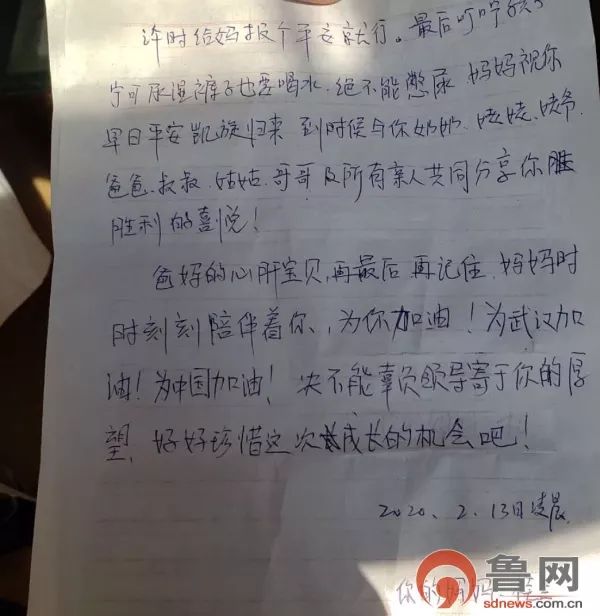 许时给妈报个平安就行。最后叮咛孩子
宁可尿湿裤子也要喝水.绝不能憋尿.妈妈祝你
早日平安凯旋归来 到时候与你奶奶、姥姥、姥爷
爸爸.叔叔.姑姑.哥哥及所有亲人共同分享你胜
胜利的喜悦!
爸妈的心肝宝贝,再最后再记住.妈妈时
时刻刻陪伴着你、为你加油!为武汉加
油!为中国加油!决不能辜负领导寄于你的厚
望,好好珍惜这次成长的机会吧!
2020、2.13日凌晨.
你的妈妈
鲁网
sdnews.com.cn